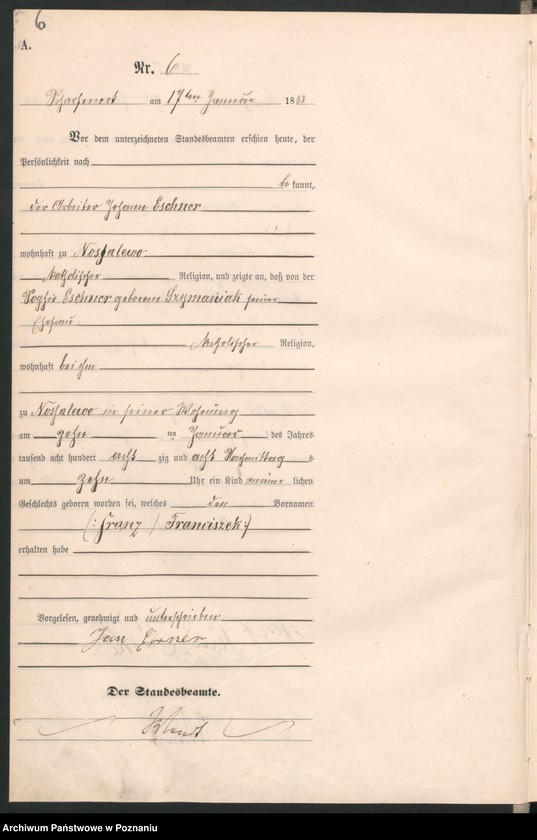 6
A.
Nr. 6
Scharfenort am 17ten Januar 1888
Vor dem unterzeichneten Standesbeamten erschien heute, der
Persönlichkeit nach
be kannt,
der Arbeiter Johann Eschner
wohnhaft zu Nossalewo
katholischer Religion, und zeigte an, daß von der
Sophie Eschner geborene Szymaniak seiner
Ehefrau
katholischer Religion,
wohnhaft bei ihm
zu Nossalewo in seiner Wohnung
am zehn ten Januar des Jahres
tausend acht hundert acht zig und acht Nachmittag s
um zehn Uhr ein Kind männ lichen
Geschlechts geboren worden sei, welches den Vornamen
(: Franz / Franciszek :)
erhalten habe
Vorgelesen, genehmigt und unterschrieben
Jan
Der Standesbeamte.
Archiwum Państwowe w Poznaniu